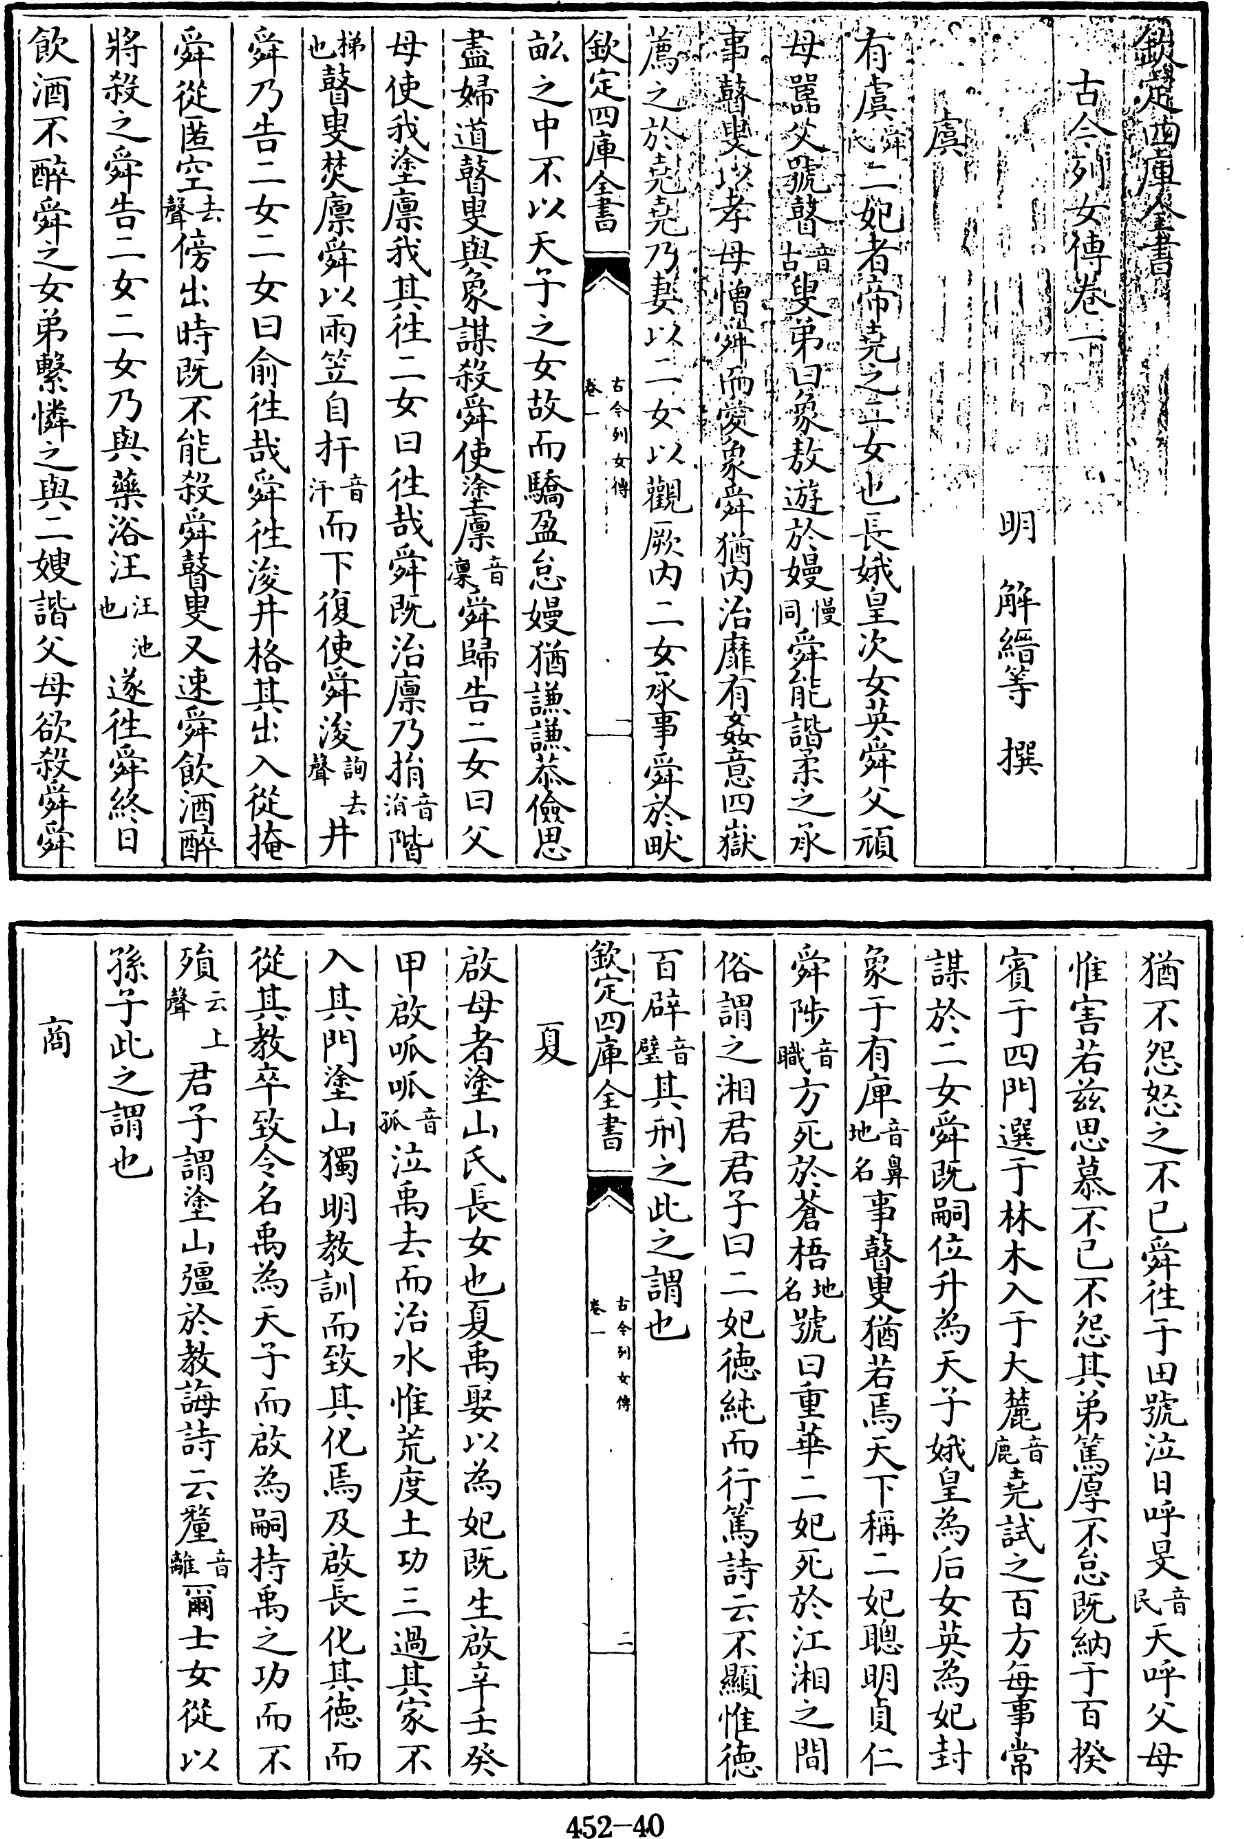 欽定四庫全書
古今列女傳卷一
明 解縉等 撰
虞
有虞舜氏二妃者帝堯之二女也長娥皇次女英舜父頑
母嚚父號瞽音古叟弟曰象敖遊於嫚慢同舜能諧柔之承
事瞽叟以孝母憎舜而愛象舜猶内治靡有姦意四嶽
薦之於堯堯乃妻以二女以觀厥内二女承事舜於畎
欽定四庫全書 古今列女傳 卷一 一
畝之中不以天子之女故而驕盈怠嫚猶謙謙恭儉思
盡婦道瞽叟與象謀殺舜使塗廩音凛舜歸告二女曰父
母使我塗廩我其徃二女曰徃哉舜既治廩乃捐音消階
梯也瞽叟焚廩舜以兩笠自扞音汗而下復使舜浚詢去聲井
舜乃告二女二女曰俞徃哉舜徃浚井格其出入從掩
舜從匿空去聲傍出時既不能殺舜瞽叟又速舜飲酒醉
將殺之舜告二女二女乃與藥浴汪汪池也遂徃舜終日
飲酒不醉舜之女弟繫憐之與二嫂諧父母欲殺舜舜
猶不怨怒之不已舜徃于田號泣日呼旻音民天呼父母
惟害若兹思慕不已不怨其弟篤厚不怠既納于百揆
賓于四門選于林木入于大麓音鹿堯試之百方每事常
謀於二女舜既嗣位升為天子娥皇為后女英為妃封
象于有庳音鼻地名事瞽叟猶若焉天下稱二妃聰明貞仁
舜陟音職方死於蒼梧地名號曰重華二妃死於江湘之間
俗謂之湘君君子曰二妃德純而行篤詩云不顯惟德
百辟音璧其刑之此之謂也
欽定四庫全書 古今列女傳 卷一 二
夏
啟母者塗山氏長女也夏禹娶以為妃既生啟辛壬癸
甲啟呱呱音孤泣禹去而治水惟荒度土功三過其家不
入其門塗山獨明教訓而致其化焉及啟長化其德而
從其教卒致令名禹為天子而啟為嗣持禹之功而不
殞云上聲君子謂塗山彊於教誨詩云釐音離爾士女從以
孫子此之謂也
商
452-40